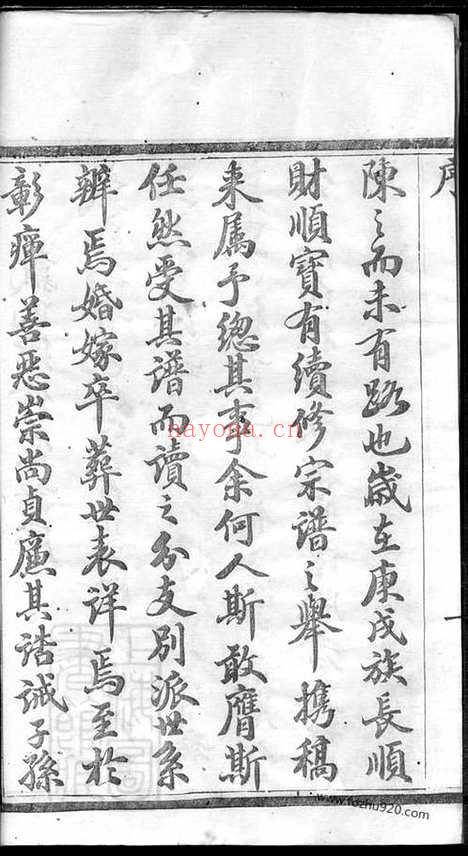 序
陳之而未有路也歲在庚戌族長順
財順寶有續修宗譜之舉携稿
来属予總其事余何人斯敢膺斯
任然受其譜而讀之分支別派世系
辨焉婚嫁卒葬世表詳焉至於
彰癉善惡崇尚貞廉其誥誡子孫
hayouna.cn
www.fozhu920.com